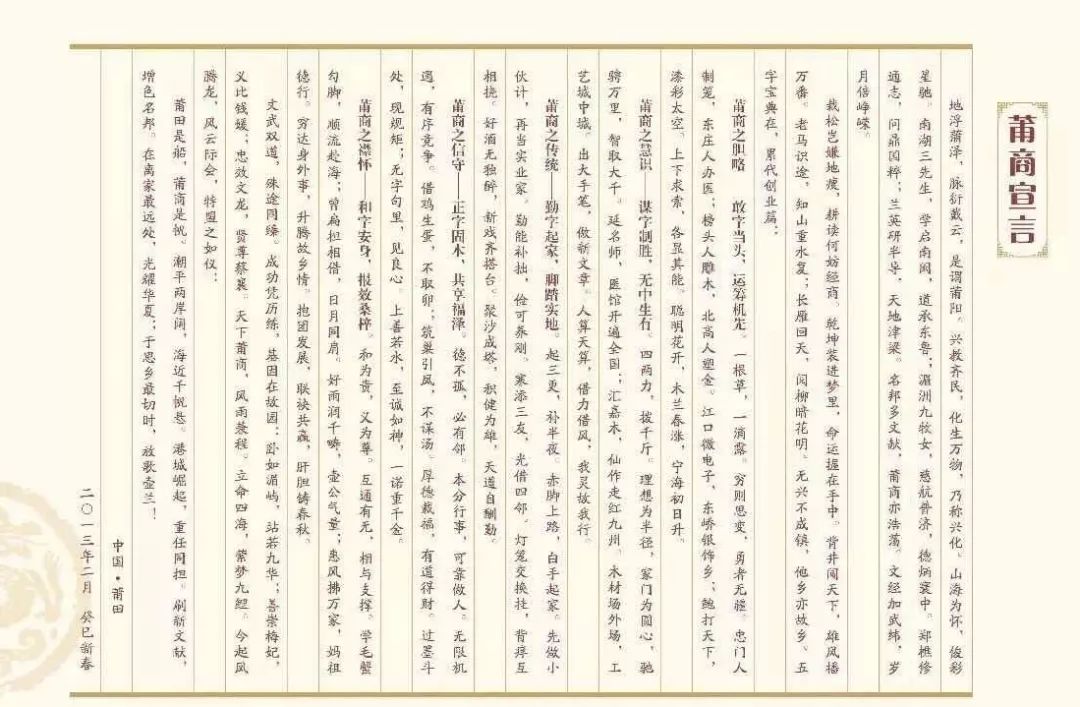 莆商宣言
地浮蒲泽，脉衍戴云，是谓莆阳。兴教齐民，化生万物，乃称兴化。山海为怀，俊彩
星驰。南湖三先生，学启南闽，道承东鲁；湄洲九牧女，慈航普济，德炳寰中。郑樵修
通志，问鼎国粹；兰英研半导，天地津梁。名邦多文献，莆商亦浩荡。文经加武纬，岁
月倍峥嵘。
栽松岂嫌地瘦，耕读何妨经商。乾坤装进梦里，命运握在手中。背井闯天下，雄风播
万番。老马识途，知山重水复；长雁回天，阅柳暗花明。无兴不成镇，他乡亦故乡。五
字宝典在，累代创业篇：
莆商之胆略——敢字当头，运筹机先。一根草，一滴露。穷则思变，勇者无疆。忠门人
制笼，东庄人办医；榜头人雕木，北高人塑金。江口微电子，东峤银饰乡；鲍打天下，
漆彩太空。上下求索，各显其能。聪明花开，木兰春涨，宁海初日升。
莆商之慧识——谋字制胜，无中生有。四两力，拨千斤。理想为半径，家门为圆心，驰
骋万里，智取大千。延名师，医馆开遍全国；汇嘉木，仙作走红九州。木材场外场，工
艺城中城。出大手笔，做新文章。人算天算，借力借风，我灵故我行。
莆商之传统——勤字起家，脚踏实地。起三更，补半夜。赤脚上路，白手起家。先做小
伙计，再当实业家。勤能补拙，俭可养刚。寒添三友，光借四邻。灯笼交换挂，背痒互
相挠。好酒无独醉，新戏齐搭台。聚沙成塔，积健为雄，天道自酬勤。
莆商之信守——正字固本，共享福泽。德不孤，必有邻。本分行事，可靠做人。无限机
遇，有序竞争。借鸡生蛋，不取卵；筑巢引凤，不谋汤。厚德载福，有道得财。过墨斗
处，现规矩；无字句里，见良心。上善若水，至诚如神，一诺重千金。
莆商之襟怀——和字安身，报效桑梓。和为贵，义为尊。互通有无，相与支撑。学毛蟹
勾脚，顺流赴海；曾扁担相借，日月同肩。好雨润千畴，壶公气量；惠风拂万家，妈祖
德行。穷达身外事，升腾故乡情。抱团发展，联袂共赢，肝胆铸春秋。
文武双道，殊途同缘。成功凭历练，基因在故园：卧如湄屿，站若九华；善崇梅妃，
义比钱嫒；忠效文龙，贤尊蔡襄。天下莆商，风雨兼程。立命四海，萦梦九鲤。今起风
腾龙，风云际会，特盟之如仪：
莆田是船，莆商是帆。潮平两岸阔，海近千帆悬。港城崛起，重任同担。刷新文献，
增色名邦。在离家最远处，光耀华夏；于思乡最切时，放歌壶兰！
中国·莆田
二〇一三年二月 癸巳新春